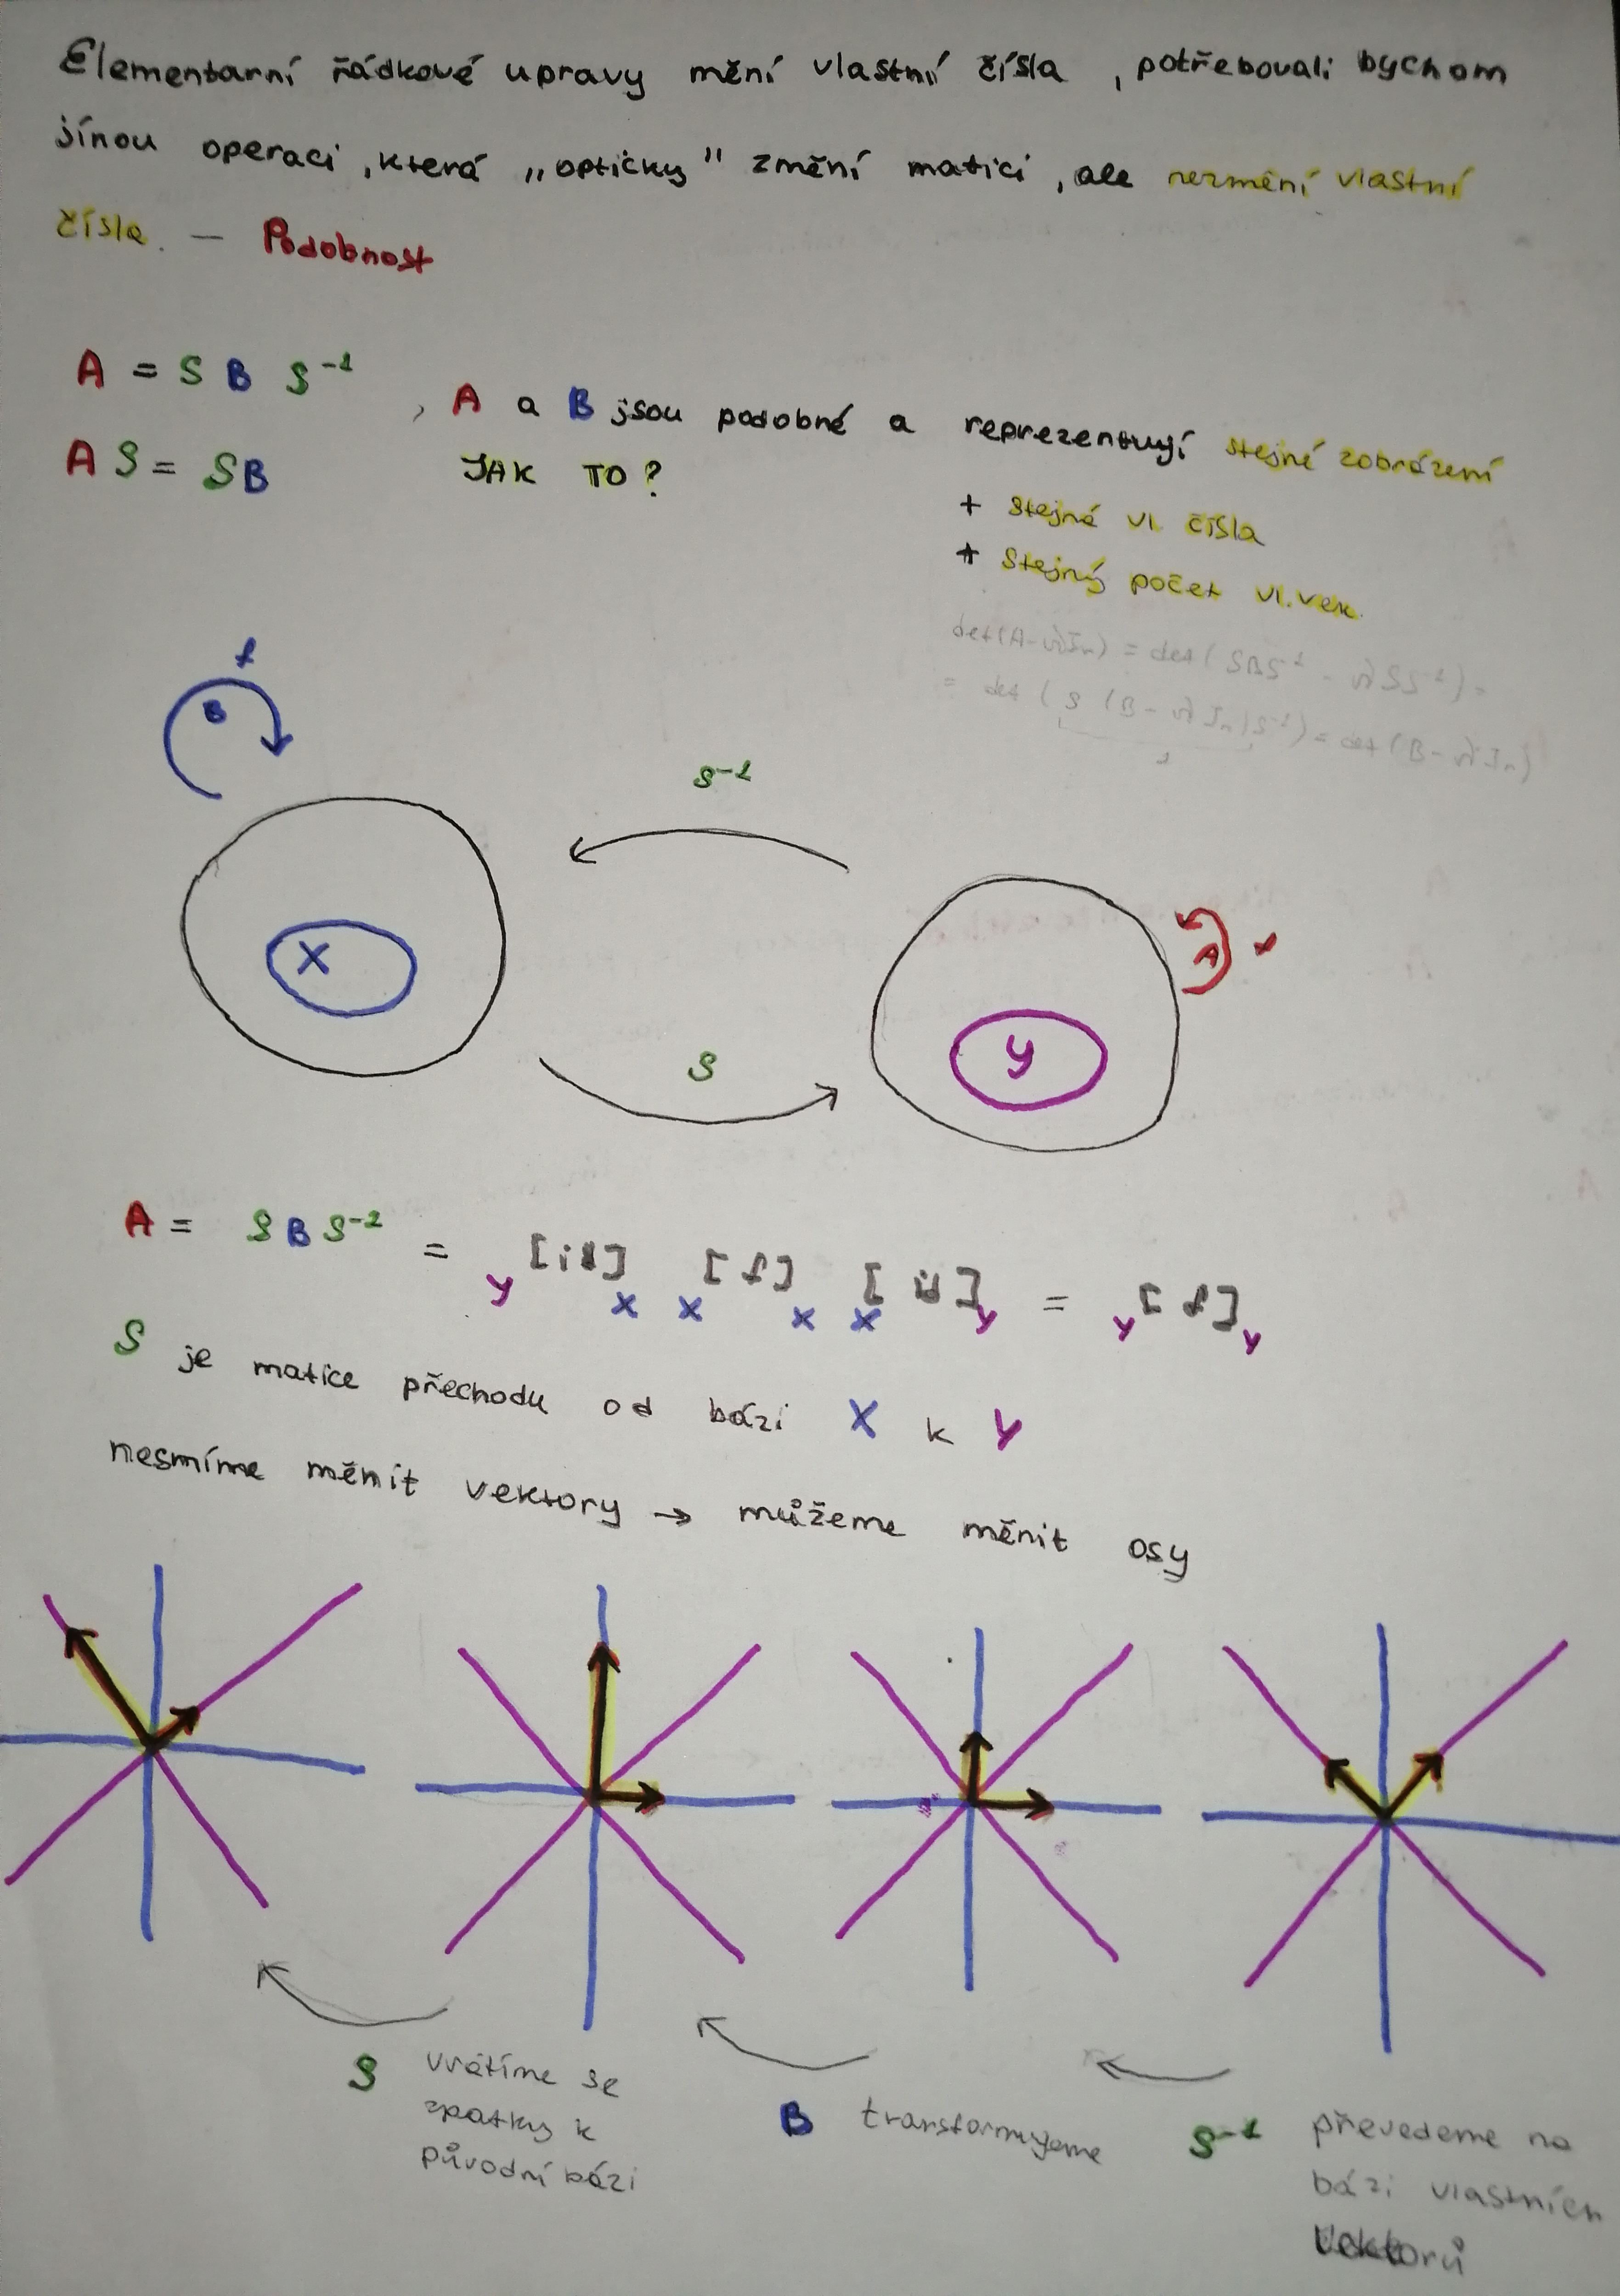 Elementarní řádkové upravy mění vlastní čísla, potřebovali bychom
jínou operaci, která „optičky" změní matici, ale nezmění vlastní
čísla. — Podobnost
A = S B S⁻¹
, A a B jsou podobné a reprezentují stejné zobrázení
A S = S B
JAK TO?
+ stejné vl. čísla
+ stejný počet vl. vek.
det(A-λIn) = det(SBS⁻¹ - λSS⁻¹) =
= det(S (B-λIn)S⁻¹) = det(B-λIn)
1
f
B
S⁻¹
X
A
f
Y
S
A = S B S⁻¹ = Y[id]X X[f]X X[id]Y = Y[f]Y
S je matice přechodu od bázi X k Y
nesmíme měnit vektory → můžeme měnit osy
S vrátíme se
zpatky k
původní bázi
B transformujeme
S⁻¹ převedeme na
bázi vlastních
vektorů